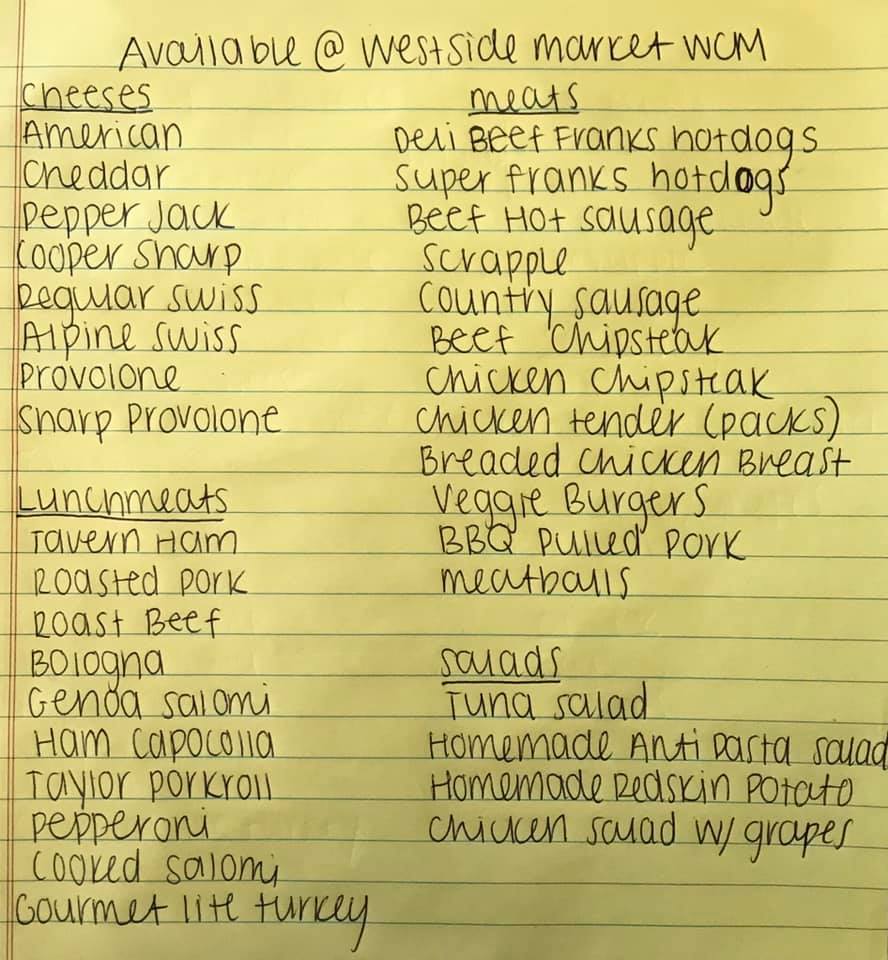 Available @ Westside market WCM
Cheeses
American
Cheddar
Pepper Jack
Cooper Sharp
Regular Swiss
Alpine Swiss
Provolone
Sharp Provolone
Lunchmeats
Tavern Ham
Roasted pork
Roast Beef
Bologna
Genoa salomi
Ham Capocolla
Taylor porkroll
Pepperoni
Cooked salomi
Gourmet lite turkey
meats
Deli Beef Franks hotdogs
Super franks hotdogs
Beef Hot sausage
Scrapple
Country sausage
Beef Chipsteak
Chicken Chipsteak
Chicken tender (packs)
Breaded Chicken Breast
Veggie Burgers
BBQ Pulled Pork
meatballs
Salads
Tuna salad
Homemade Anti Pasta salad
Homemade Redskin Potato
Chicken salad w/ grapes